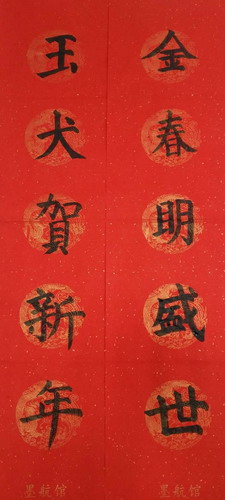 金春明盛世
玉犬賀新年
墨航馆
墨航馆